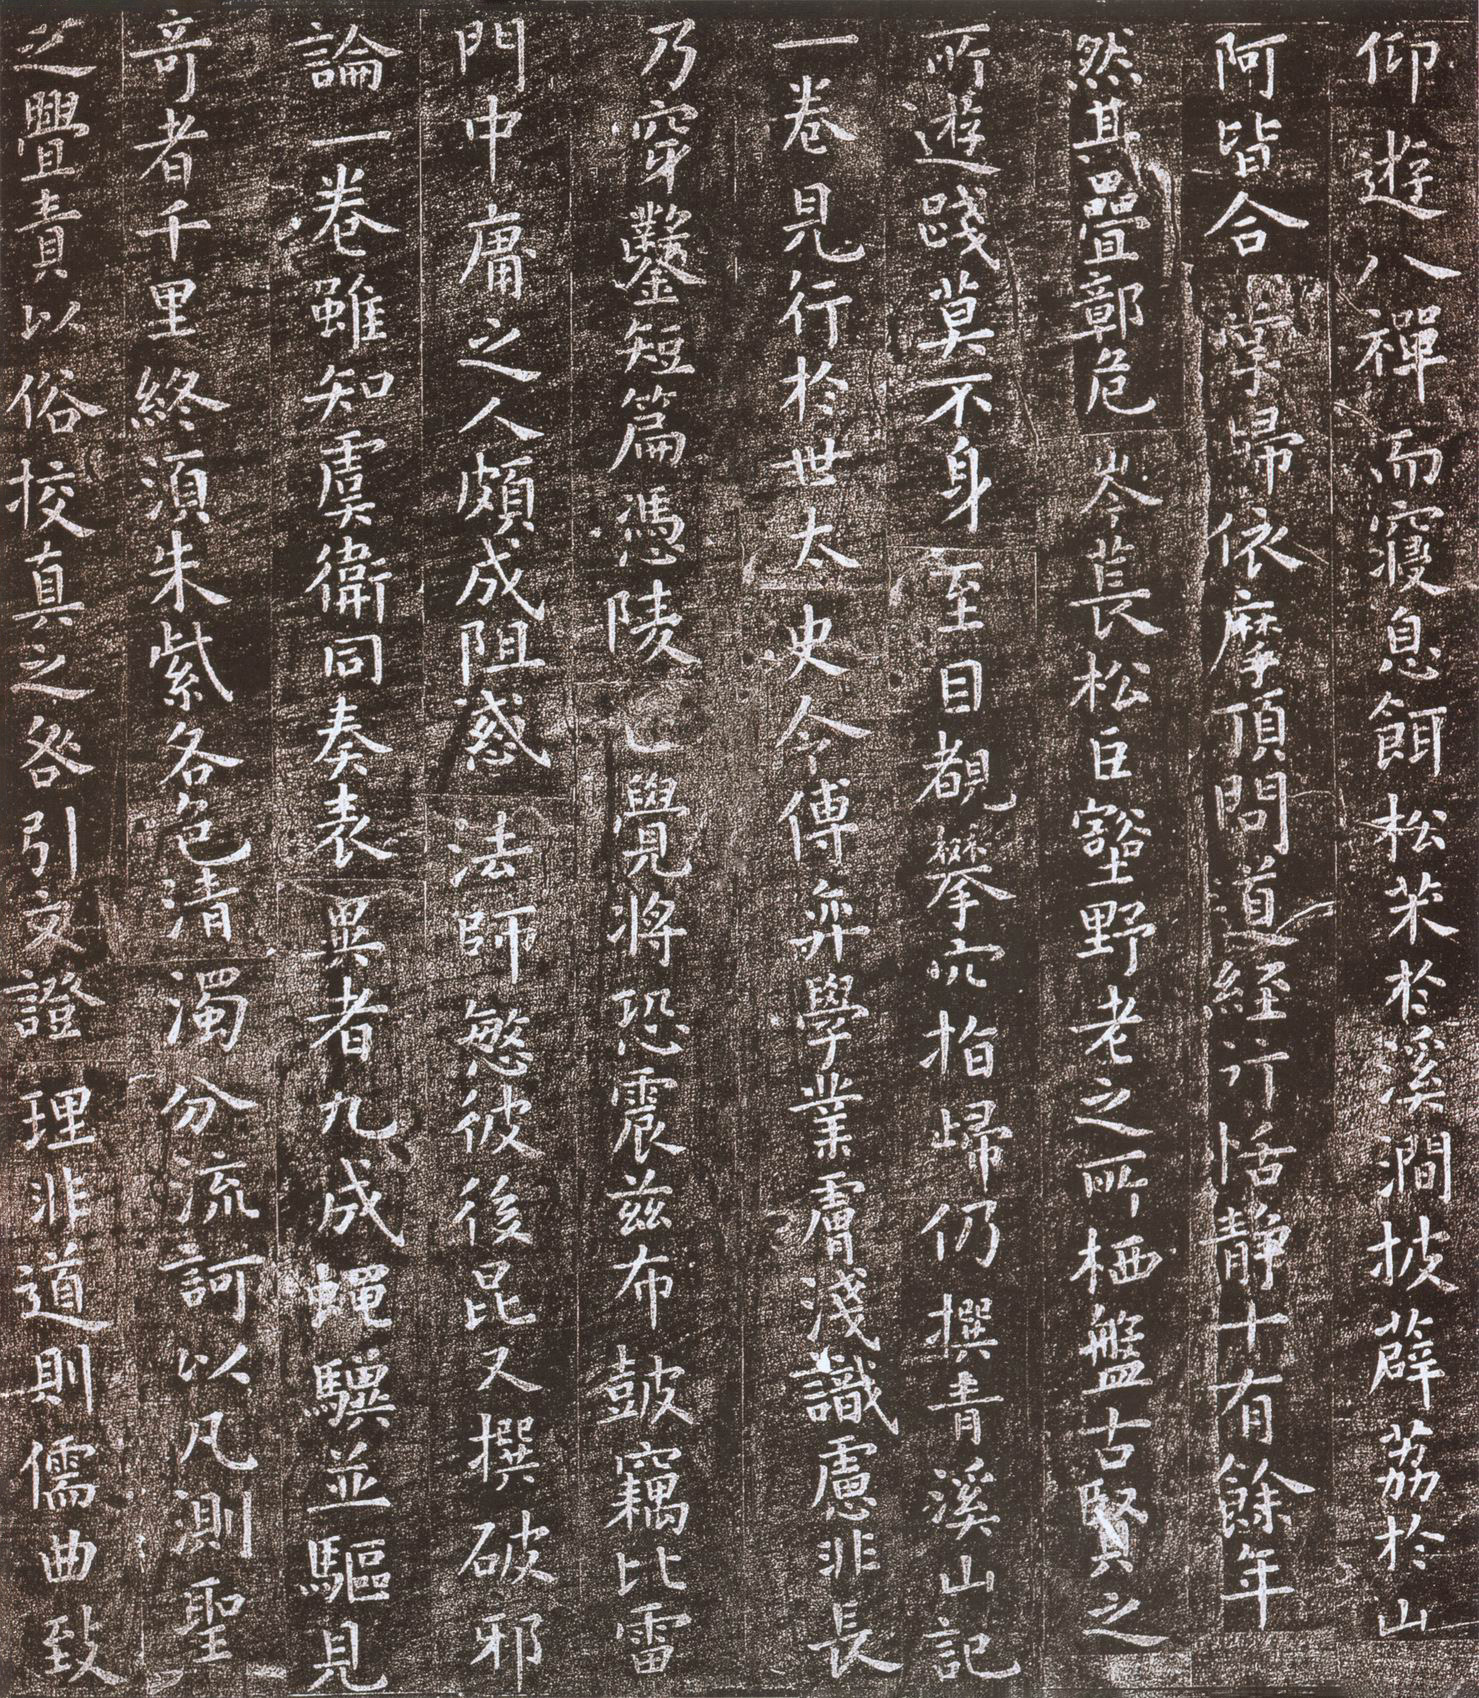 仰遊八禪而寢息餌松朮於溪澗披薜荔於山
阿皆合掌歸依摩頂問道經行恬靜十有餘年
然其疊鄣危岑萇松巨壑野老之所栖盤古賢之
所遊踐莫不身至目覩攀穴指歸仍撰青溪山記
一卷見行於世太史令傅弈學業膚淺識慮非長
乃穿鑿短篇憑陵正覺將恐震茲布皷竊比雷
門中庸之人頗成阻惑法師愍彼後昆又撰破邪
論一卷雖知虞衛同奏表異者九成蠅驥並驅見
奇者千里終須朱紫各色清濁分流訶以凡測聖
之舋責以俗挍真之咎引文證理非道則儒曲致